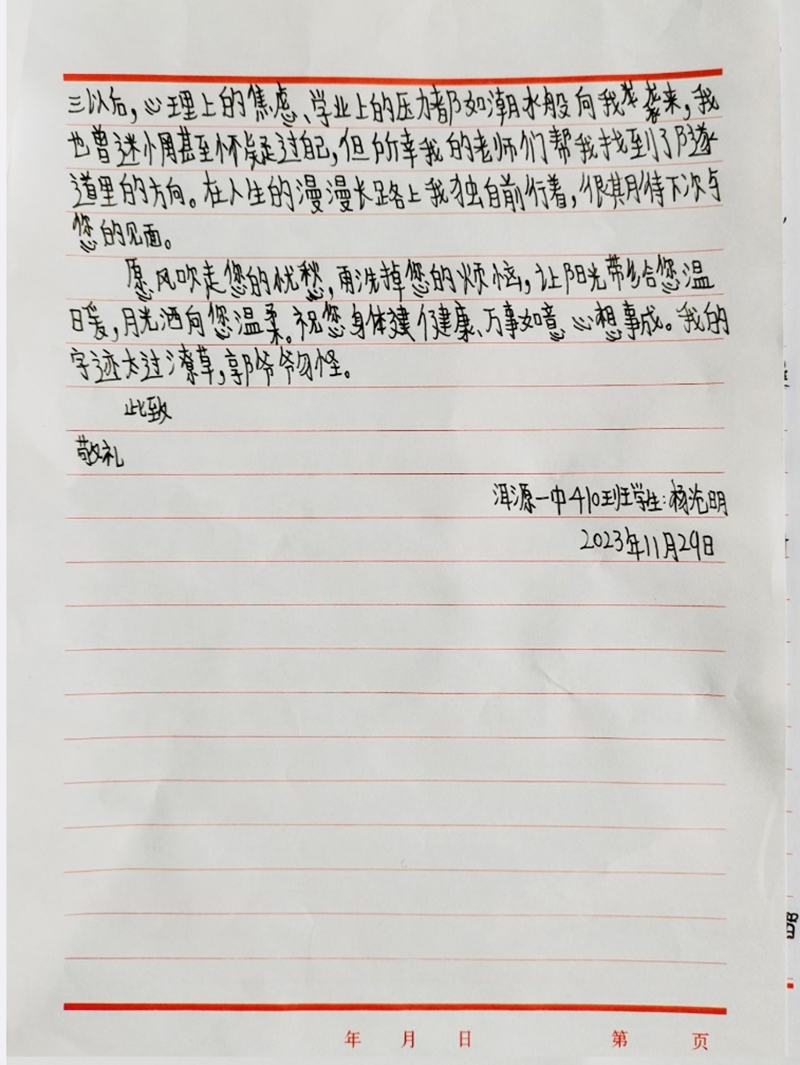 三以后，心理上的焦虑、学业上的压力都如潮水般向我袭来，我
也曾迷惘甚至怀疑过自己，但所幸我的老师们帮我找到了隧
道里的方向。在人生的漫漫长路上我独自前行着，很期待下次与
您的见面。
愿风吹走您的忧愁，雨洗掉您的烦恼，让阳光带给您温
暖，月光洒向您温柔。祝您身体健康、万事如意、心想事成。我的
字迹太过潦草，郭爷爷勿怪。
此致
敬礼
洱源一中410班学生：杨沧明
2023年11月29日
年 月 日 第 页